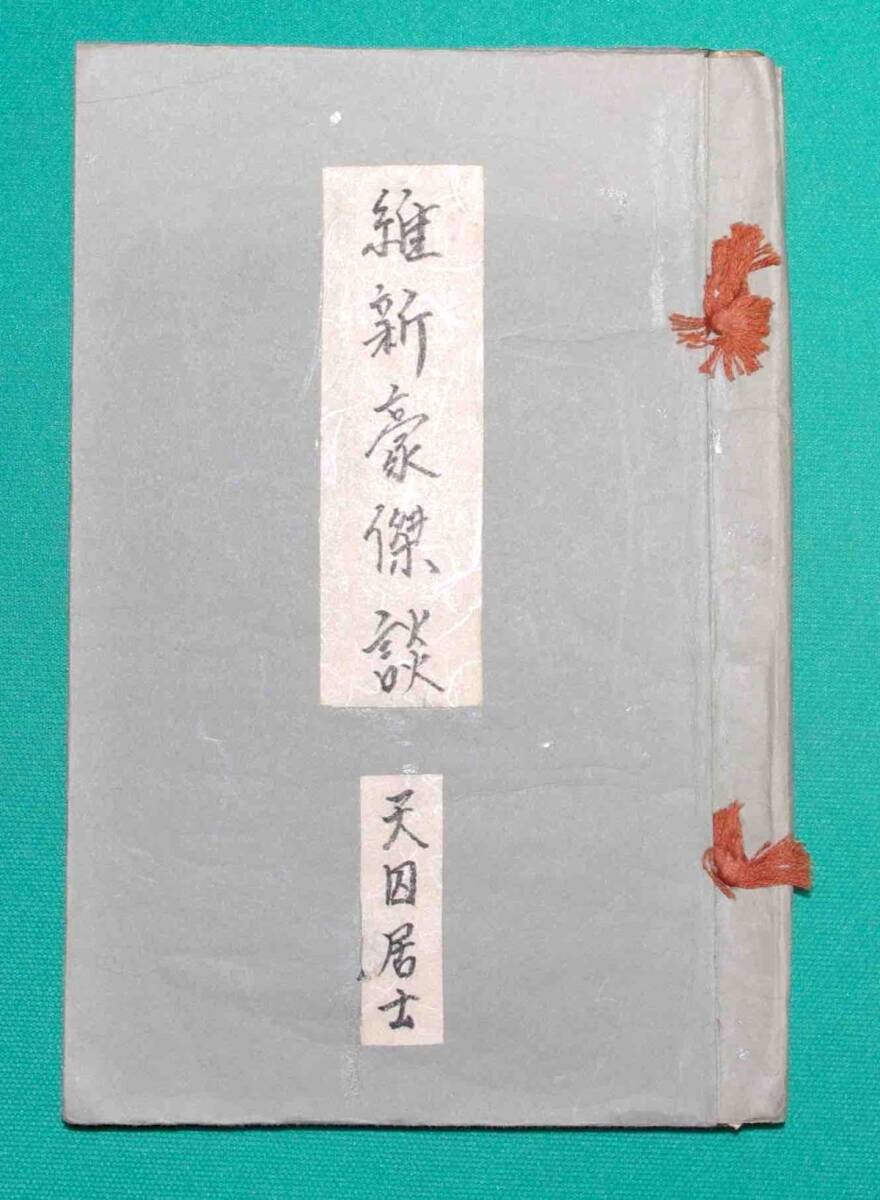 維新豪傑談
天囚居士